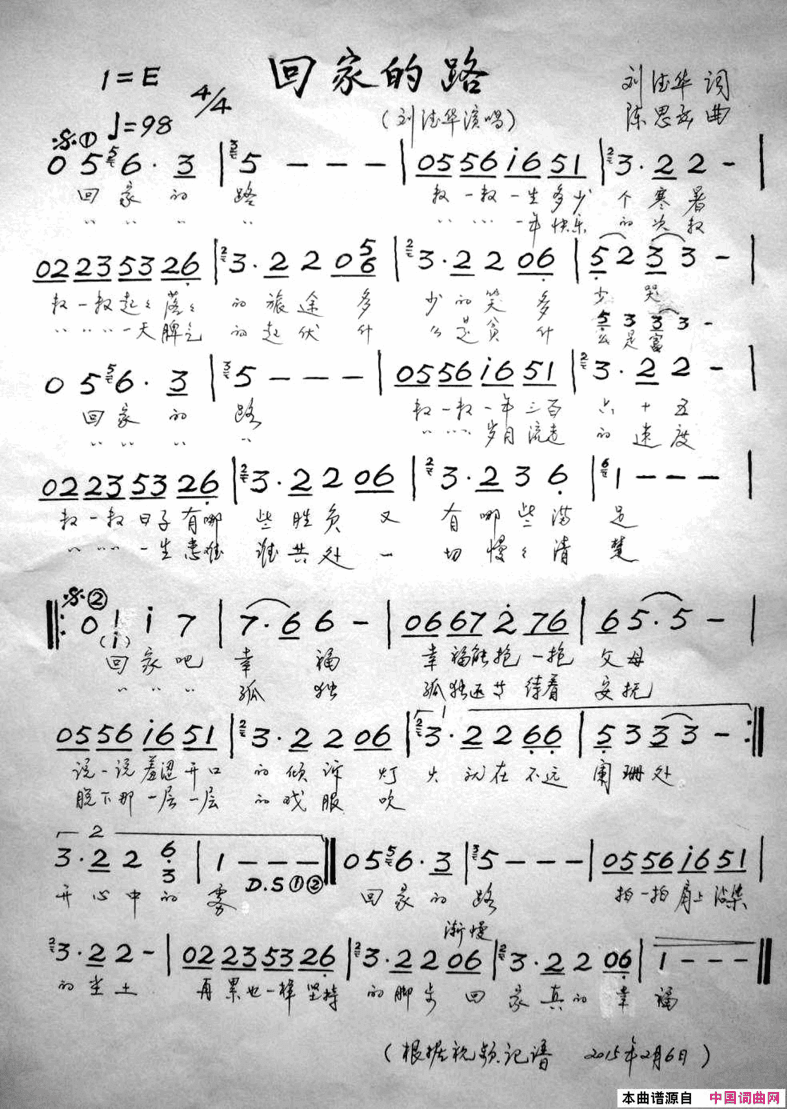 回家的路
1=E 4/4
♩=98
(刘德华演唱)
刘德华 词
曲
𝄋① 0 5 6· 3 | 5 - - - | 0556 i651 | 3·2 2 - |
回家的 路 数一数一生多少 个寒暑
〃〃〃 〃 〃〃〃一年快乐 的次数
022353 26 | 3·2 2 0 5/6 | 3·2 2 06 | 5 2 3 3 - |
数一数起〻落〻 的旅途 多 少的笑 多 少 哭
〃〃〃一天脾气 的起伏 什 么是贫 什 么是富
5 3 3 3 -
0 5 6· 3 | 5 - - - | 0556 i651 | 3·2 2 - |
回家的 路 数一数一年三百 六十五
〃〃〃 〃 〃〃〃岁月流走 的速度
022353 26 | 3·2 2 06 | 3·2 3 6 | 1 - - - |
数一数日子有哪 些胜负 又 有哪些满 足
〃〃〃一生患难 谁共处 一 切慢〻清 楚
𝄋② 0 i i 7 | 7·6 6 - | 0667 2 76 | 6 5·5 - |
(i)
回家吧 幸 福 幸福能抱一抱 父母
〃〃〃 孤 独 孤独还等待着 安抚
0556 i651 | 3·2 2 06 | 3·2 2 66 | 5 3 3 3 - :|
说一说羞涩开口 的倾诉 灯 火就在不远 阑珊处
脱下那一层一层 的戏服 吹
3·2 2 6/3 | 1 - - - | 0 5 6·3 | 5 - - - | 0556 i651 |
开心中的 雾 D.S①② 回家的 路 拍一拍肩上沾染
渐慢
3·2 2 - | 022353 26 | 3·2 2 06 | 3·2 2 06 | 1 - - - ||
的尘土 再累也一样坚持 的脚步 回 家真的幸 福
(根据视频记谱 2015年2月6日)
本曲谱源自 中国词曲网